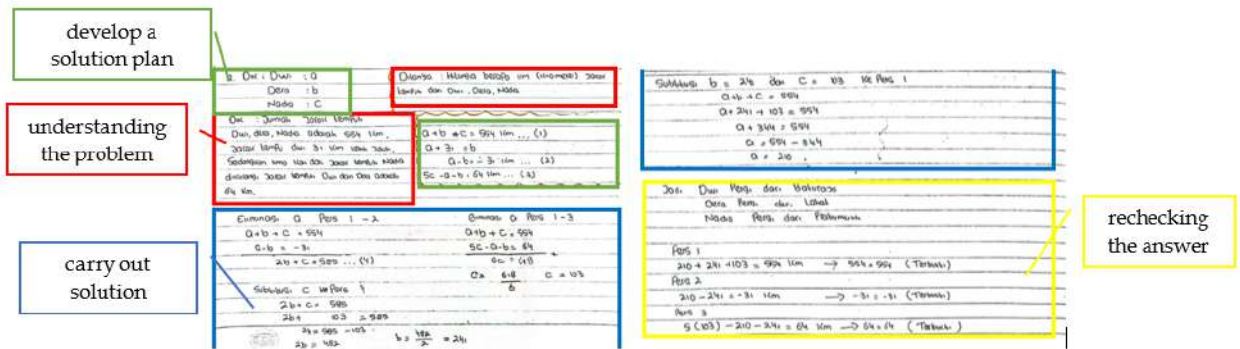 develop a
solution plan
understanding
the problem
carry out
solution
rechecking
the answer
2. Dik : Dwi : a
Dera : b
Nada : c
Ditanya : berapa km (kilometer) jarak
tempuh dari Dwi, Dera, Nada
Dik : Jumlah jarak tempuh
Dwi, dera, Nada adalah 554 km.
jarak dwi 31 km
Sedangkan lima kali dari jarak tempuh Nada
dikurangi jarak tempuh Dwi dan Dera adalah
64 km.
a+b+c = 554 km ... (1)
a + 31 = b
a-b = - 31 km ... (2)
5c -a-b = 64 km ... (3)
Eliminasi a Pers 1 - 2
a+b+c = 554
a-b = -31
2b + c = 585 ... (4)
Eliminasi a Pers 1-3
a+b+c = 554
5c-a-b = 64
6c = 618
c = 618
6
c = 103
Substitusi c ke Pers 4
2b+c = 585
2b+ 103 = 585
2b = 585 -103
2b = 482
b = 482
2
= 241
Substitusi b = 241 dan c = 103 ke Pers 1
a+b+c = 554
a+241+103 = 554
a+344 = 554
a = 554 - 344
a = 210
Jadi Dwi Pergi dari
Dera Pergi dari
Nada Pergi dari
Pers 1
210 + 241 +103 = 554 km → 554=554 (Terbukti)
Pers 2
210-241 = -31 km → -31 = -31 (Terbukti)
Pers 3
5 (103) -210-241 = 64 km → 64=64 (Terbukti)